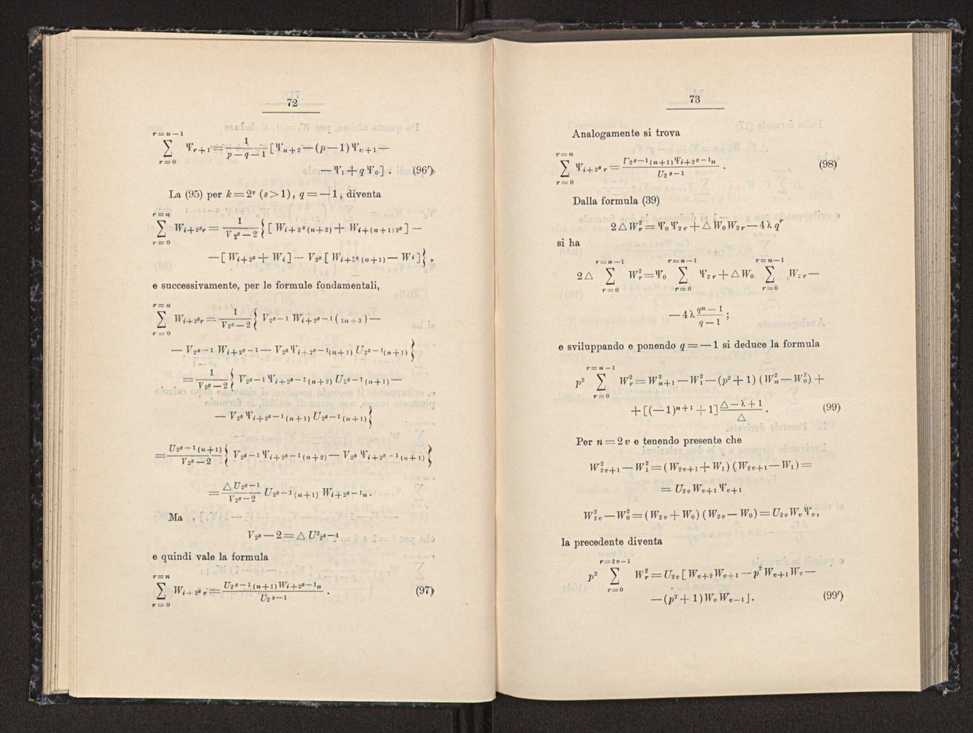 72
\sum_{r=0}^{r=n-1} Ψ_{r+1} = \frac{1}{p-q-1} [Ψ_{n+2} - (p-1) Ψ_{n+1} -
- Ψ_1 + q Ψ_0] . (96')
La (95) per k = 2^s (s > 1), q = -1, diventa
\sum_{r=0}^{r=n} W_{i+2^s r} = \frac{1}{V_{2^s} - 2} \{ [ W_{i+2^s(n+2)} + W_{i+(n+1)2^s} ] -
- [ W_{i+2^s} + W_i ] - V_{2^s} [ W_{i+2^s(n+1)} - W_i ] \} ,
e successivamente, per le formule fondamentali,
\sum_{r=0}^{r=n} W_{i+2^s r} = \frac{1}{V_{2^s} - 2} \{ V_{2^{s-1}} W_{i+2^{s-1}( 2n+3 )} -
- V_{2^{s-1}} W_{i+2^{s-1}} - V_{2^s} Ψ_{i+2^{s-1}(n+1)} U_{2^{s-1}(n+1)} \}
= \frac{1}{V_{2^s} - 2} \{ V_{2^{s-1}} Ψ_{i+2^{s-1}(n+2)} U_{2^{s-1}(n+1)} -
- V_{2^s} Ψ_{i+2^{s-1}(n+1)} U_{2^{s-1}(n+1)} \}
= \frac{U_{2^{s-1}(n+1)}}{V_{2^s} - 2} \{ V_{2^{s-1}} Ψ_{i+2^{s-1}(n+2)} - V_{2^s} Ψ_{i+2^{s-1}(n+1)} \}
= \frac{△ U_{2^{s-1}}}{V_{2^s} - 2} U_{2^{s-1}(n+1)} W_{i+2^{s-1}n} .
Ma
V_{2^s} - 2 = △ U^2_{2^{s-1}}
e quindi vale la formula
\sum_{r=0}^{r=n} W_{i+2^s r} = \frac{U_{2^{s-1}(n+1)} W_{i+2^{s-1}n}}{U_{2^{s-1}}} . (97)
73
Analogamente si trova
\sum_{r=0}^{r=n} Ψ_{i+2^s r} = \frac{U_{2^{s-1}(n+1)} Ψ_{i+2^{s-1}n}}{U_{2^{s-1}}} . (98)
Dalla formula (39)
2 △ W_r^2 = Ψ_0 Ψ_{2r} + △ W_0 W_{2r} - 4 λ q^r
si ha
2 △ \sum_{r=0}^{r=n-1} W_r^2 = Ψ_0 \sum_{r=0}^{r=n-1} Ψ_{2r} + △ W_0 \sum_{r=0}^{r=n-1} W_{2r} -
- 4 λ \frac{q^n - 1}{q - 1} ;
e sviluppando e ponendo q = -1 si deduce la formula
p^2 \sum_{r=0}^{r=n-1} W_r^2 = W_{n+1}^2 - W_1^2 - (p^2 + 1) (W_n^2 - W_0^2) +
+ [(-1)^{n+1} + 1] \frac{△ - λ + 1}{△} . (99)
Per n = 2 v e tenendo presente che
W_{2v+1}^2 - W_1^2 = (W_{2v+1} + W_1) (W_{2v+1} - W_1) =
= U_{2v} W_{v+1} Ψ_{v+1}
W_{2v}^2 - W_0^2 = (W_{2v} + W_0) (W_{2v} - W_0) = U_{2v} W_v Ψ_v,
la precedente diventa
p^2 \sum_{r=0}^{r=2v-1} W_r^2 = U_{2v} [ W_{v+2} W_{v+1} - p^2 W_{v+1} W_v -
- (p^2 + 1) W_v W_{v-1} ] . (99')